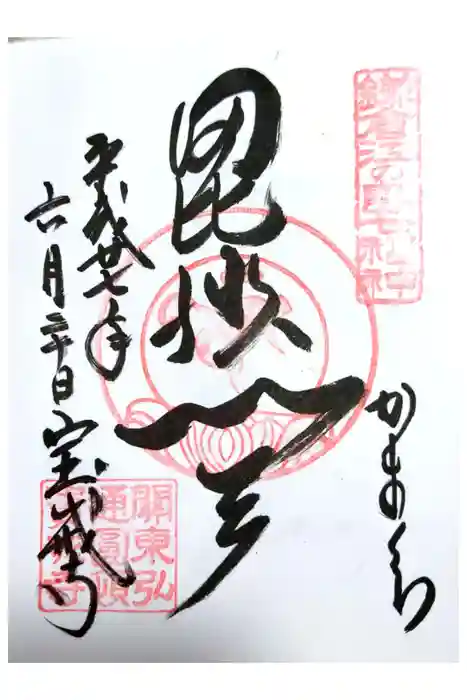 鎌倉江の島七福神
かまくら
毘沙門天
平成廿七年
六月二十日 宝戒寺
關東弘
通圓頓
寳戒寺